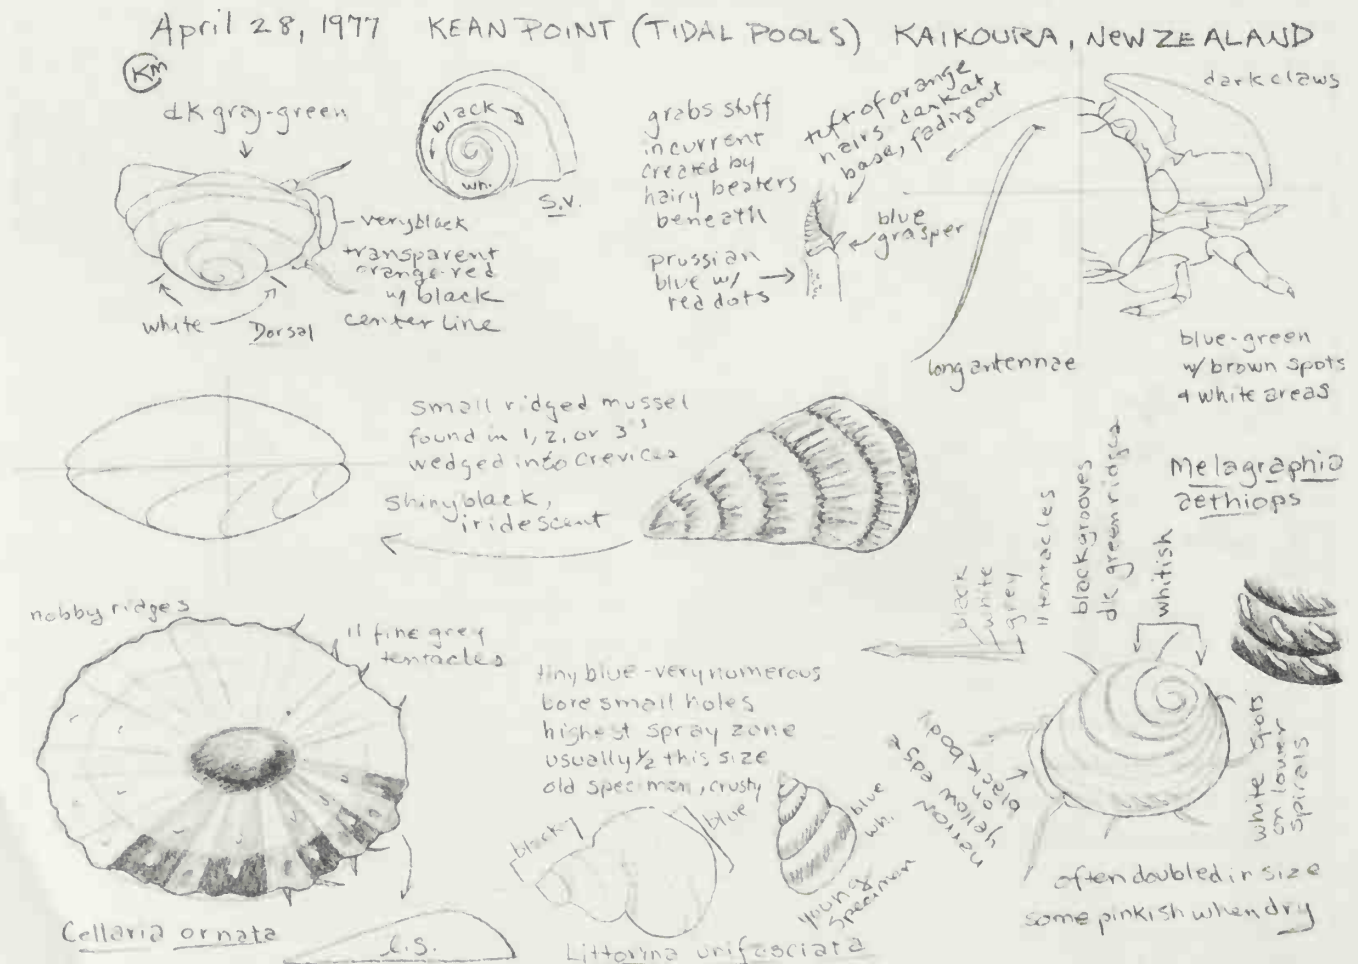 April 28, 1977 KEAN POINT (TIDAL POOLS) KAIKOURA, NEW ZEALAND
Km
dk gray-green
black
wh.
S.V.
very black
transparent
orange-red
w/ black
center line
white
Dorsal
grabs stuff
in current
created by
hairy beaters
beneath
tuft of orange
hairs dark at
base, fading out
blue
grasper
prussian
blue w/
red dots
dark claws
long antennae
blue-green
w/ brown spots
+ white areas
small ridged mussel
found in 1, 2, or 3's
wedged into crevices
shiny black,
iridescent
Melagraphia
aethiops
black
white
grey
11 tentacles
black grooves
dk green ridges
whitish
white spots
on lower
spirals
narrow edge
yellow on
black body
often doubled in size
some pinkish when dry
nobby ridges
11 fine grey
tentacles
Cellaria ornata
l.s.
tiny blue-very numerous
bore small holes
highest spray zone
usually 1/2 this size
old specimen, crusty
blacky
blue
blue
wh.
young
specimen
Littorina unifasciata